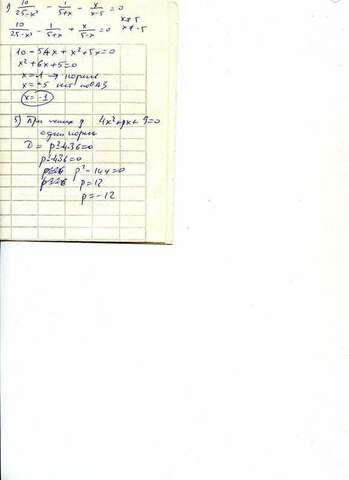 10/(25-x²) - 1/(5+x) - x/(x-5) = 0 x≠5
10/(25-x²) - 1/(5+x) + x/(5-x) = 0 x≠-5
10-5+x+x²+5x=0
x²+6x+5=0
x=-1 → корень
x=-5 нет по ОДЗ
x=-1
5) При каких p 4x²+px+9=0
один корень
D = p²-4·36=0
p²-4·36=0
p²-144=0
p=12
p=-12